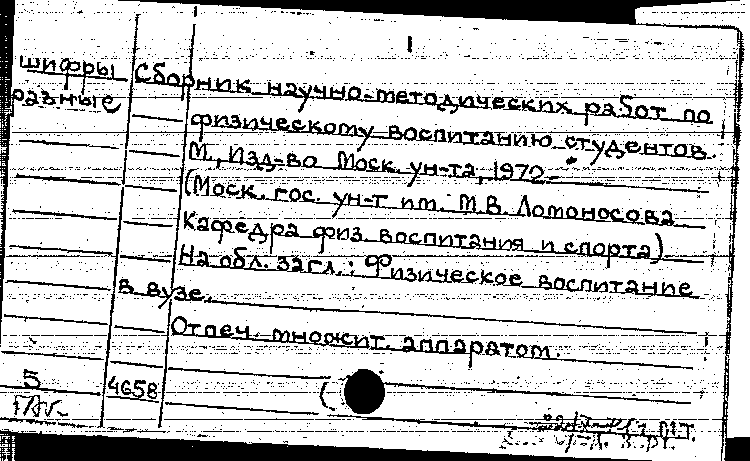 1
шифры
разные
Сборник научно-методических работ по
физическому воспитанию студентов.
М., Изд-во Моск. ун-та, 1970-
(Моск. гос. ун-т им. М.В. Ломоносова
Кафедра физ. воспитания и спорта)
На обл. загл.: Физическое воспитание
в вузе.
Отпеч. множит. аппаратом.
5
4658